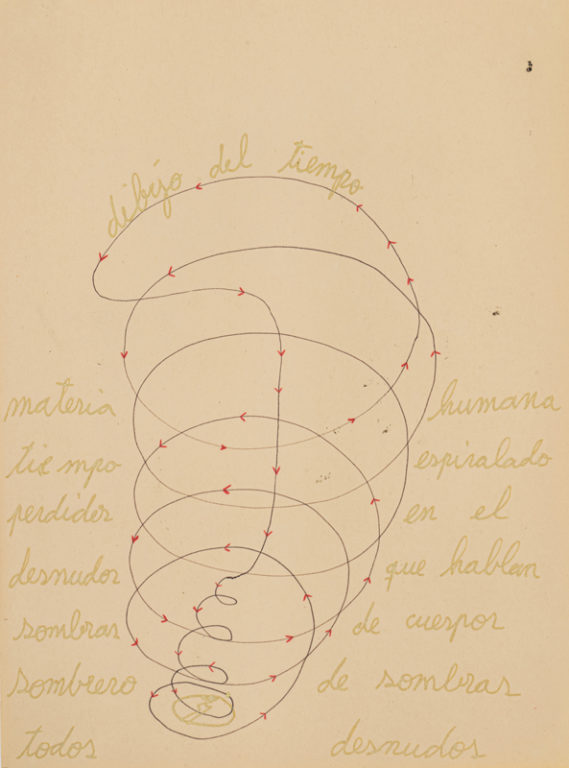 dibujo del tiempo
materia humana
tiempo espiralado
perdidos en el
desnudos que hablan
sombras de cuerpos
sombrero de sombras
todos desnudos